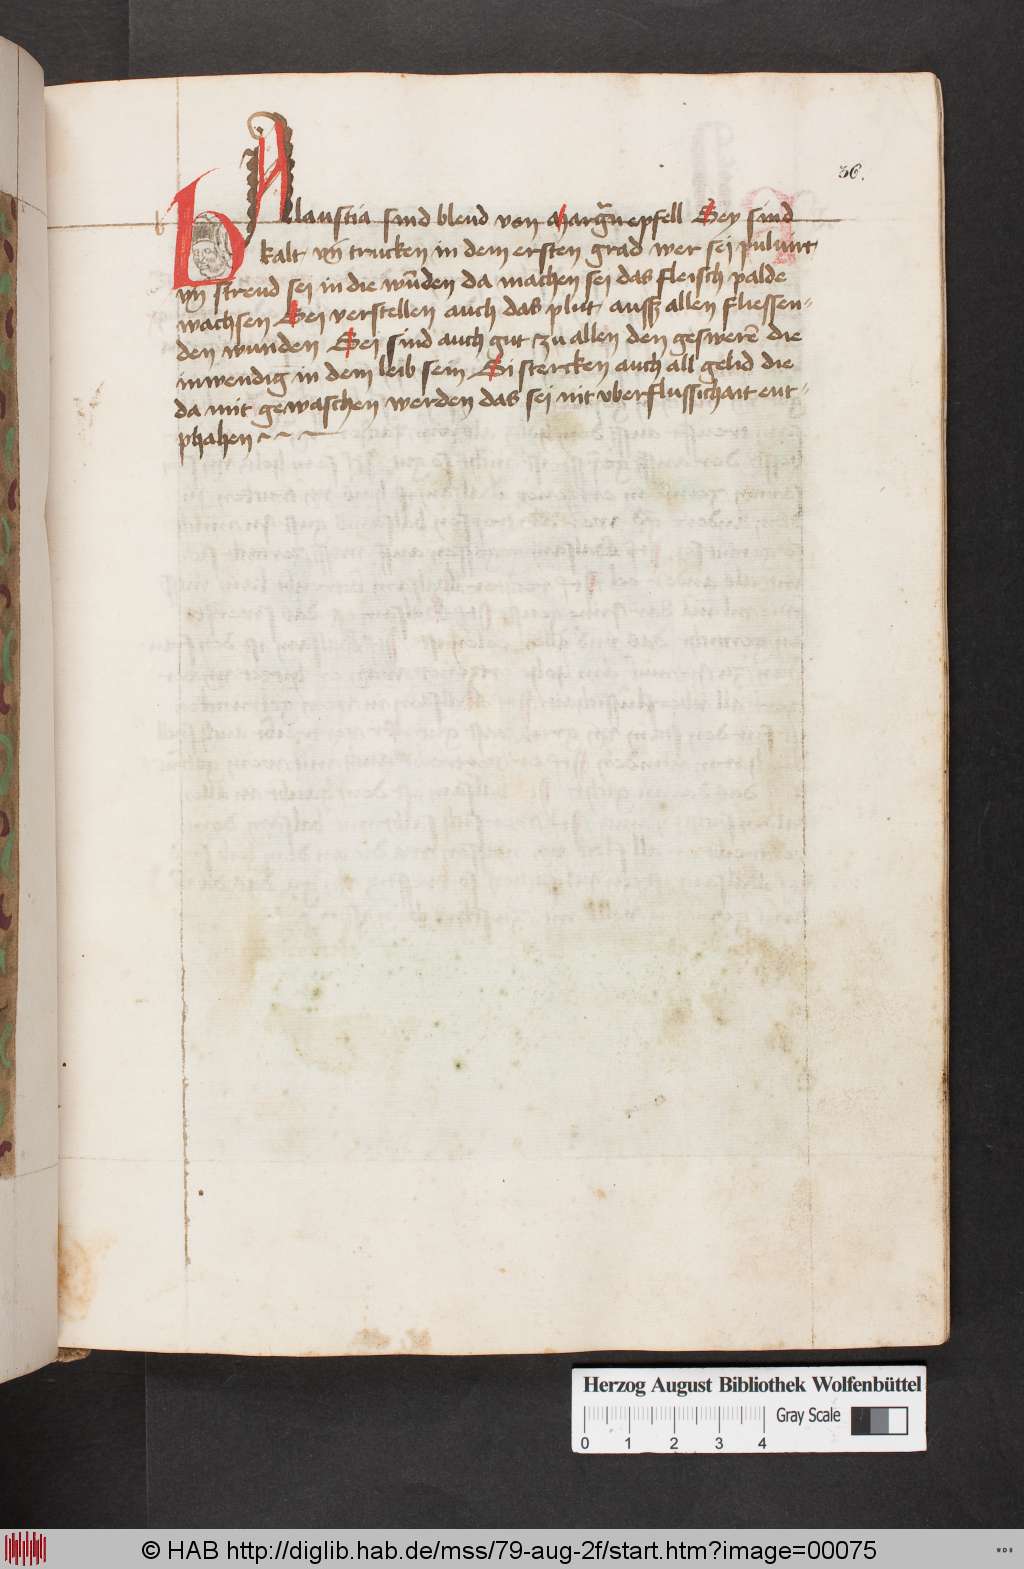 36.
BAlaustia sind blend von margrāēnepfell Sey sind
kalt vn̄ trucken in dem ersten grad wer sei puluirt
vn̄ strend sei in die wūden da machen sei das fleisch palde
wachsen Sei verstellen auch das plut aussz allen fliessen-
den wunden Sei sind auch gut zu allen den geswerē die
inwendig in dem leib sein Si stercken auch all gelid die
da mit gewaschen werden das sei nit vberflussichait ent-
phahen
Herzog August Bibliothek Wolfenbüttel
Gray Scale
0 1 2 3 4
© HAB http://diglib.hab.de/mss/79-aug-2f/start.htm?image=00075